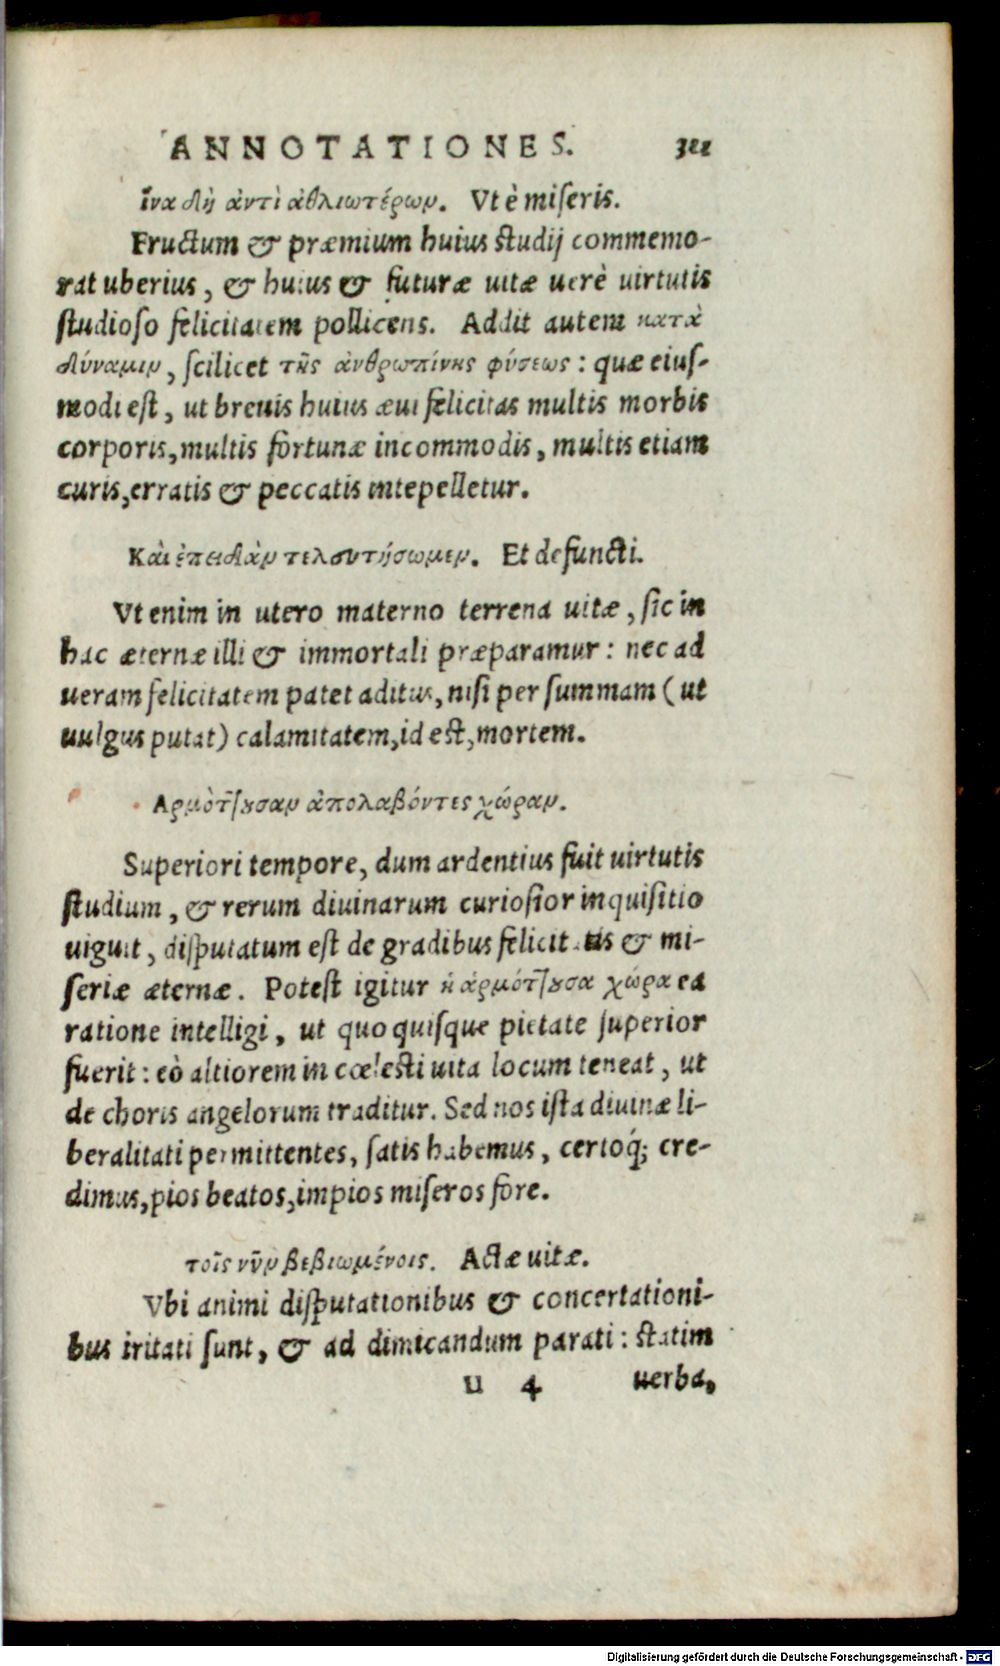 ANNOTATIONES. 311
ἵνα δὴ ἀντὶ ἀθλιωτέρων. Vt è miseris.
Fructum & præmium huius studij commemo-
rat uberius, & huius & futuræ uitæ uerè uirtutis
studioso felicitatem pollicens. Addit autem κατὰ
δύναμιν, scilicet τῆς ἀνθρωπίνης φύσεως: quæ eius-
modi est, ut breuis huius æui felicitas multis morbis
corporis, multis fortunæ incommodis, multis etiam
curis, erratis & peccatis intepelletur.
Καὶ ἐπειδὰν τελευτήσωμεν. Et defuncti.
Vt enim in utero materno terrena uitæ, sic in
hac æternæ illi & immortali præparamur: nec ad
ueram felicitatem patet aditus, nisi per summam (ut
uulgus putat) calamitatem, id est, mortem.
Αρμόττουσαν ἀπολαβόντες χώραν.
Superiori tempore, dum ardentius fuit uirtutis
studium, & rerum diuinarum curiosior inquisitio
uiguit, disputatum est de gradibus felicitatis & mi-
seriæ æternæ. Potest igitur ἡ ἁρμόττουσα χώρα ea
ratione intelligi, ut quo quisque pietate superior
fuerit: eò altiorem in cœlesti uita locum teneat, ut
de choris angelorum traditur. Sed nos ista diuinæ li-
beralitati permittentes, satis habemus, certoq́; cre-
dimus, pios beatos, impios miseros fore.
τοῖς νῦν βεβιωμένοις. Actæ uitæ.
Vbi animi disputationibus & concertationi-
bus iritati sunt, & ad dimicandum parati: statim
u 4 uerba,
Digitalisierung gefördert durch die Deutsche Forschungsgemeinschaft - DFG